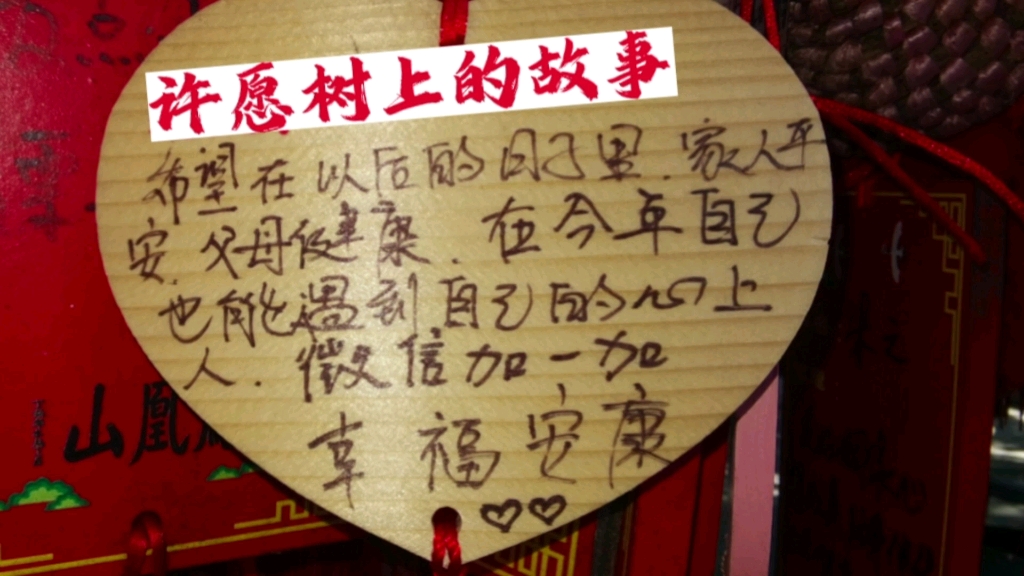 许愿树上的故事
希望在以后的日子里.家人平
安.父母健康.在今年自己
也能遇到自己的心上
人.微信加一加
幸福安康
♡♡
山凰